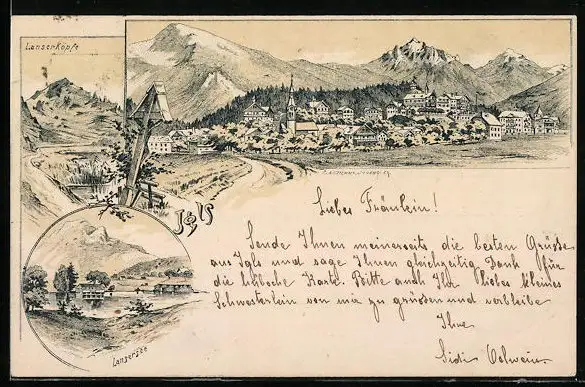 Lanserköpfe
Igls
Lansersee
Liebes Fräulein!
Sende Ihnen meinerseits die besten Grüße
aus Igls und sage Ihnen gleichzeitig Dank für
die hübsche Karte. Bitte auch Ihr liebes kleines
Schwesterlein von mir zu grüssen und verbleibe
Ihre
Sidi